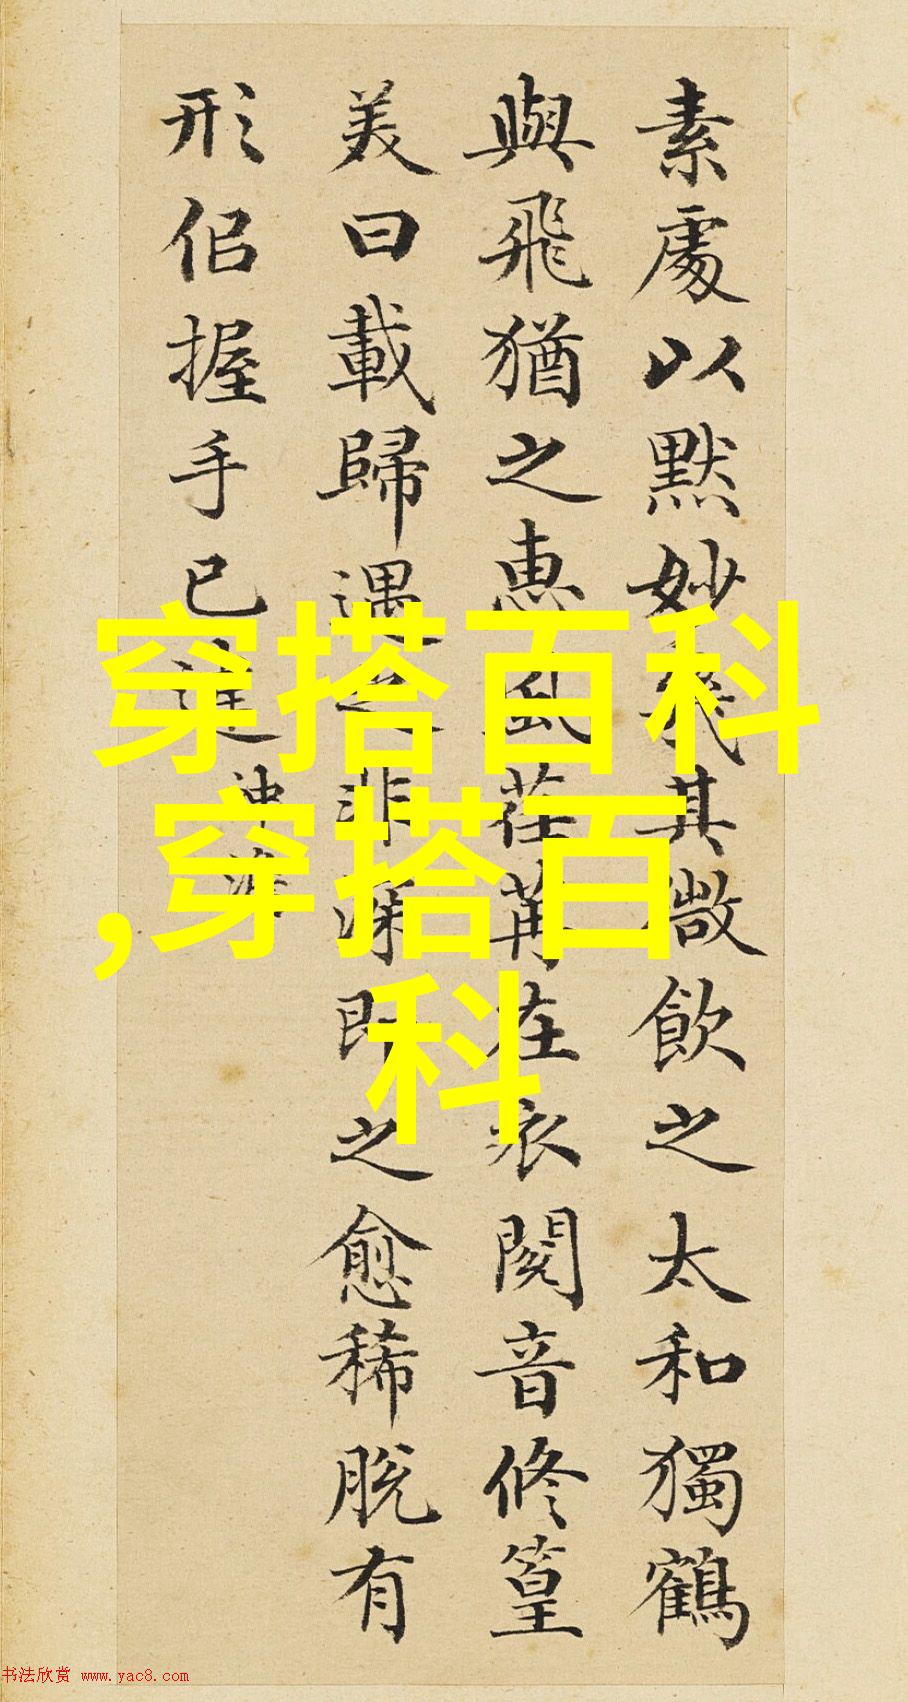 素處以默妙機其微飲之太和獨鶴
與飛猶之惠風荏苒在衣閱音修篁
美曰載歸遇之非深即之愈稀脫有
形佀握手已違
穿搭百科
,穿搭百
科
书法欣赏 www.yac8.com